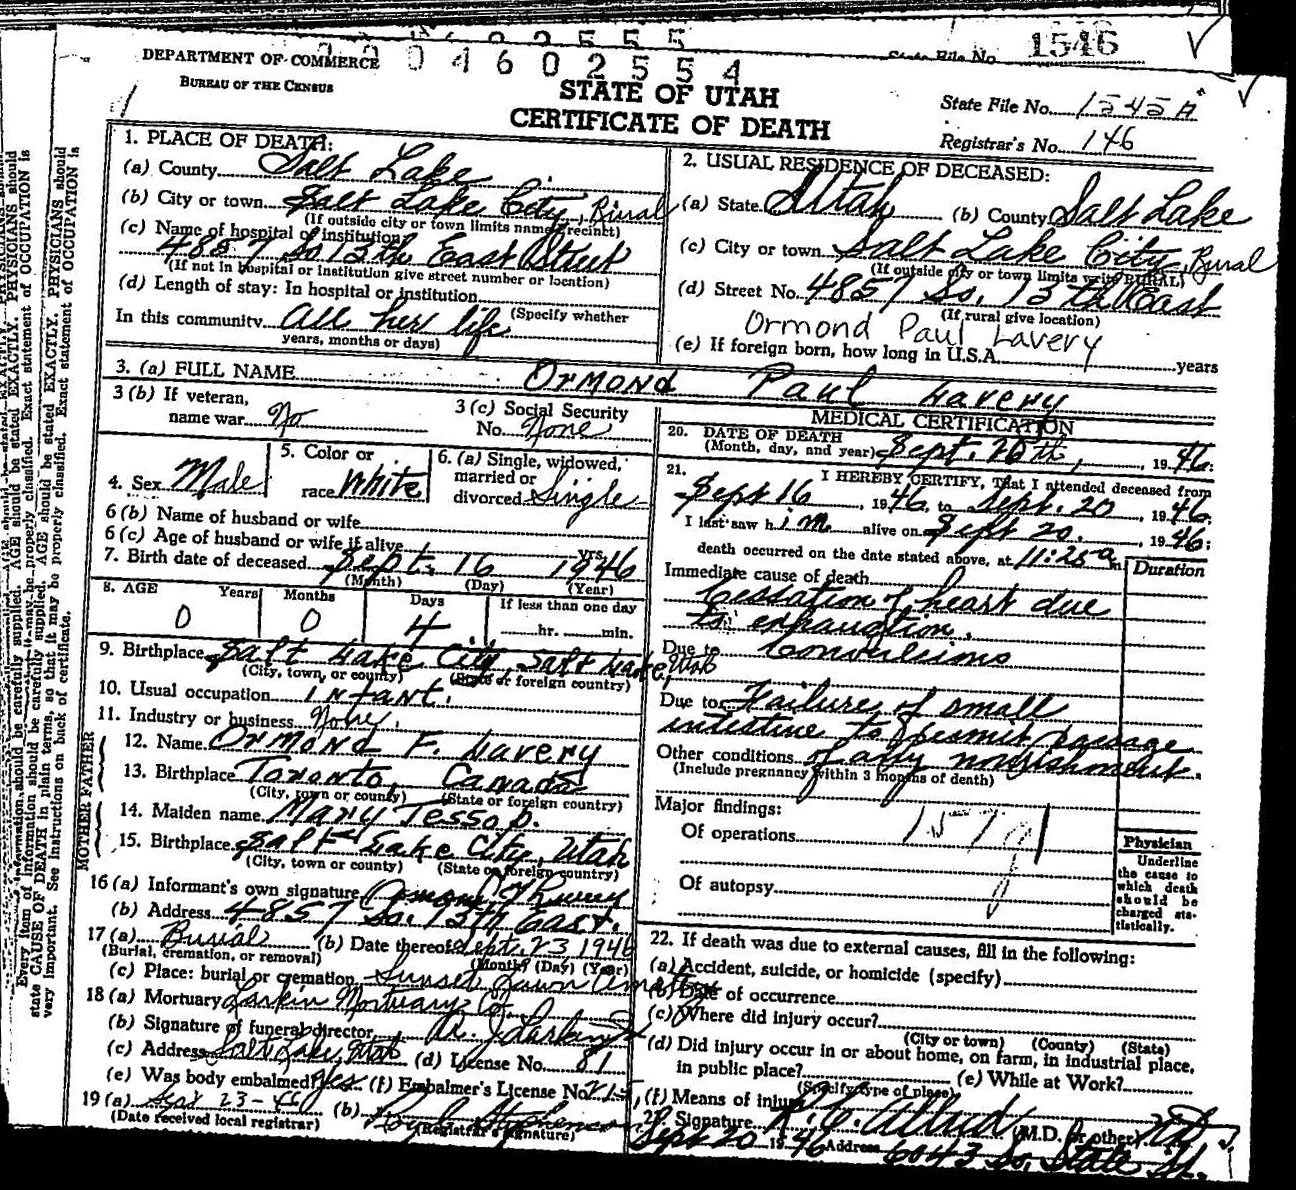 1546
State File No.
DEPARTMENT OF COMMERCE
BUREAU OF THE CENSUS
0 4 6 0 2 5 5 4
STATE OF UTAH
CERTIFICATE OF DEATH
State File No. 1545A
Registrar's No. 146
1. PLACE OF DEATH:
(a) County Salt Lake
(b) City or town Salt Lake City, Rural
(If outside city or town limits name precinct)
(c) Name of hospital or institution
4857 So 13th East Street
(If not in hospital or institution give street number or location)
(d) Length of stay: In hospital or institution
(Specify whether
In this community All her life
years, months or days)
2. USUAL RESIDENCE OF DECEASED:
(a) State Utah (b) County Salt Lake
(c) City or town Salt Lake City, Rural
(If outside city or town limits write RURAL)
(d) Street No. 4857 So. 13th East
(If rural give location)
Ormond Paul Lavery
(e) If foreign born, how long in U.S.A. years
3. (a) FULL NAME Ormond Paul Lavery
3 (b) If veteran,
name war No
3 (c) Social Security
No. None
4. Sex Male
5. Color or
race White
6. (a) Single, widowed,
married or
divorced Single
6 (b) Name of husband or wife
6 (c) Age of husband or wife if alive yrs.
7. Birth date of deceased Sept. 16 1946
(Month) (Day) (Year)
8. AGE Years Months Days If less than one day
0 0 4 hr. min.
9. Birthplace Salt Lake City, Salt Lake, Utah
(City, town, or county) (State or foreign country)
10. Usual occupation infant.
11. Industry or business None.
FATHER
12. Name Ormond F. Lavery
13. Birthplace Toronto, Canada
(City, town or county) (State or foreign country)
MOTHER
14. Maiden name Mary Jessop.
15. Birthplace Salt Lake City, Utah
(City, town or county) (State or foreign country)
16 (a) Informant's own signature Ormond F Lavery
(b) Address 4857 So. 13th East.
17 (a) Burial (b) Date thereof Sept. 23 1946
(Burial, cremation, or removal) (Month) (Day) (Year)
(c) Place: burial or cremation Sunset Lawn
18 (a) Mortuary Larkin Mortuary Co.
(b) Signature of funeral director
(c) Address Salt Lake, Utah (d) License No. 81
(e) Was body embalmed? Yes. (f) Embalmer's License No. 215
19 (a) Sept 23-46 (b)
(Date received local registrar) (Registrar's signature)
MEDICAL CERTIFICATION
20. DATE OF DEATH
(Month, day, and year) Sept. 20th, 1946:
21. I HEREBY CERTIFY, That I attended deceased from
Sept 16, 1946, to Sept. 20, 1946.
I last saw him alive on Sept 20. 1946;
death occurred on the date stated above, at 11:25 a m
Duration
Immediate cause of death
Cessation of heart due
to exhaustion.
Due to Convulsions
Due to Failure of small
intestine to permit passage
Other conditions of any nourishment.
(Include pregnancy within 3 months of death)
Major findings:
Of operations
Of autopsy
Physician
Underline
the cause to
which death
should be
charged sta-
tistically.
22. If death was due to external causes, fill in the following:
(a) Accident, suicide, or homicide (specify)
(b) Date of occurrence
(c) Where did injury occur?
(City or town) (County) (State)
(d) Did injury occur in or about home, on farm, in industrial place,
in public place? (e) While at Work?
(Specify type of place)
(f) Means of injury
23. Signature (M.D. or other) MD
Sept 20 1946 Address 6043 So. State St.
Every item of information should be carefully supplied. AGE should be stated EXACTLY. PHYSICIANS should
state CAUSE OF DEATH in plain terms, so that it may be properly classified. Exact statement of OCCUPATION is
very important. See instructions on back of certificate.